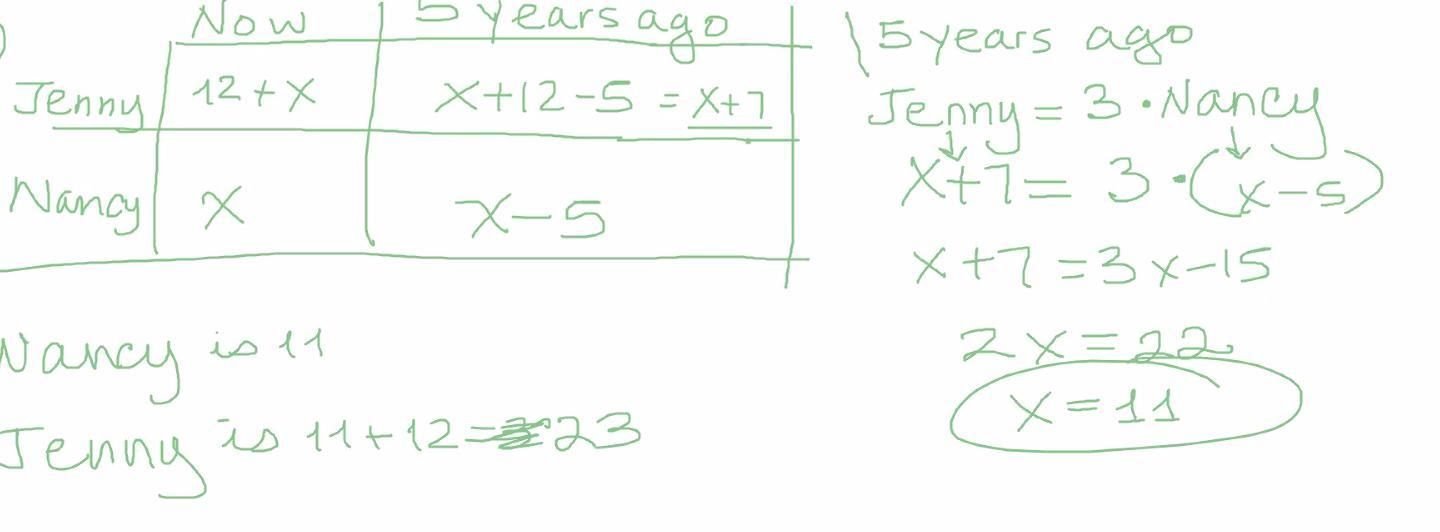 Now 5 years ago
Jenny 12+x x+12-5 = x+7
Nancy x x-5
Nancy is 11
Jenny is 11+12= 23
5 years ago
Jenny = 3·Nancy
x+7= 3·(x-5)
x+7=3x-15
2x=22
x=11